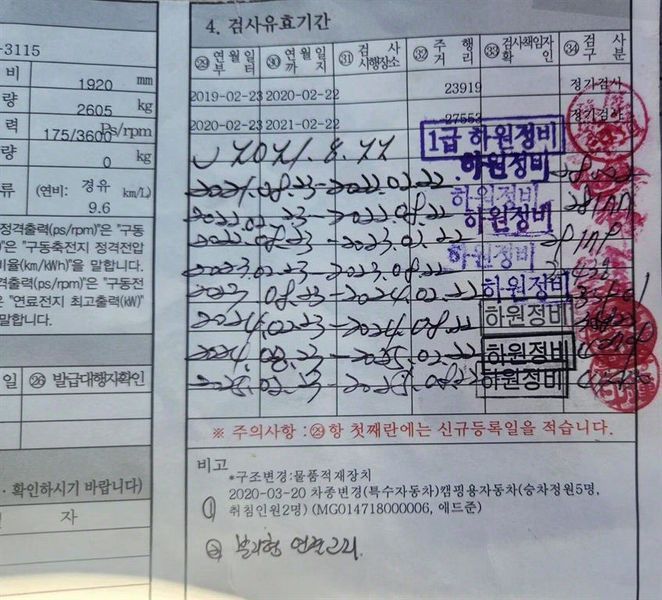 4. 검사유효기간
-3115
비 1920 mm
량 2605 kg
력 175/3600 Ps/rpm
량 0 kg
류 (연비: 경유 9.6 km/L)
정격출력(ps/rpm)"은 "구동
)"은 "구동축전지 정격전압
비율(km/kWh)"을 말합니다.
격출력(ps/rpm)"은 "구동전
은 "연료전지 최고출력(kW)"
말합니다.
일 ㉖ 발급대행자확인
· 확인하시기 바랍니다)
자
㉙ 연월일부터 ㉚ 연월일까지 ㉛ 검사시행장소 ㉜ 주행거리 ㉝ 검사책임자확인 ㉞ 검사구분
2019-02-23 2020-02-22 23919 정기검사
2020-02-23 2021-02-22 27553 정기검사
1급 하원정비
2021.8.22 하원정비
2021.08.23-2022.02.22 하원정비
2022.02.23-2022.08.22 하원정비
2022.08.23-2023.02.22 하원정비
2023.02.23-2023.08.22
2023.08.23-2024.02.22 하원정비
2024.02.23-2024.08.22 하원정비
2024.08.23-2025.02.22 하원정비
2025.02.23-2025.08.22 하원정비
※ 주의사항 : ㉙항 첫째란에는 신규등록일을 적습니다.
비고
*구조변경:물품적재장치
① 2020-03-20 차종변경(특수자동차)캠핑용자동차(승차정원5명,
취침인원2명) (MG014718000006, 에드준)
② 분리형 연결고리.